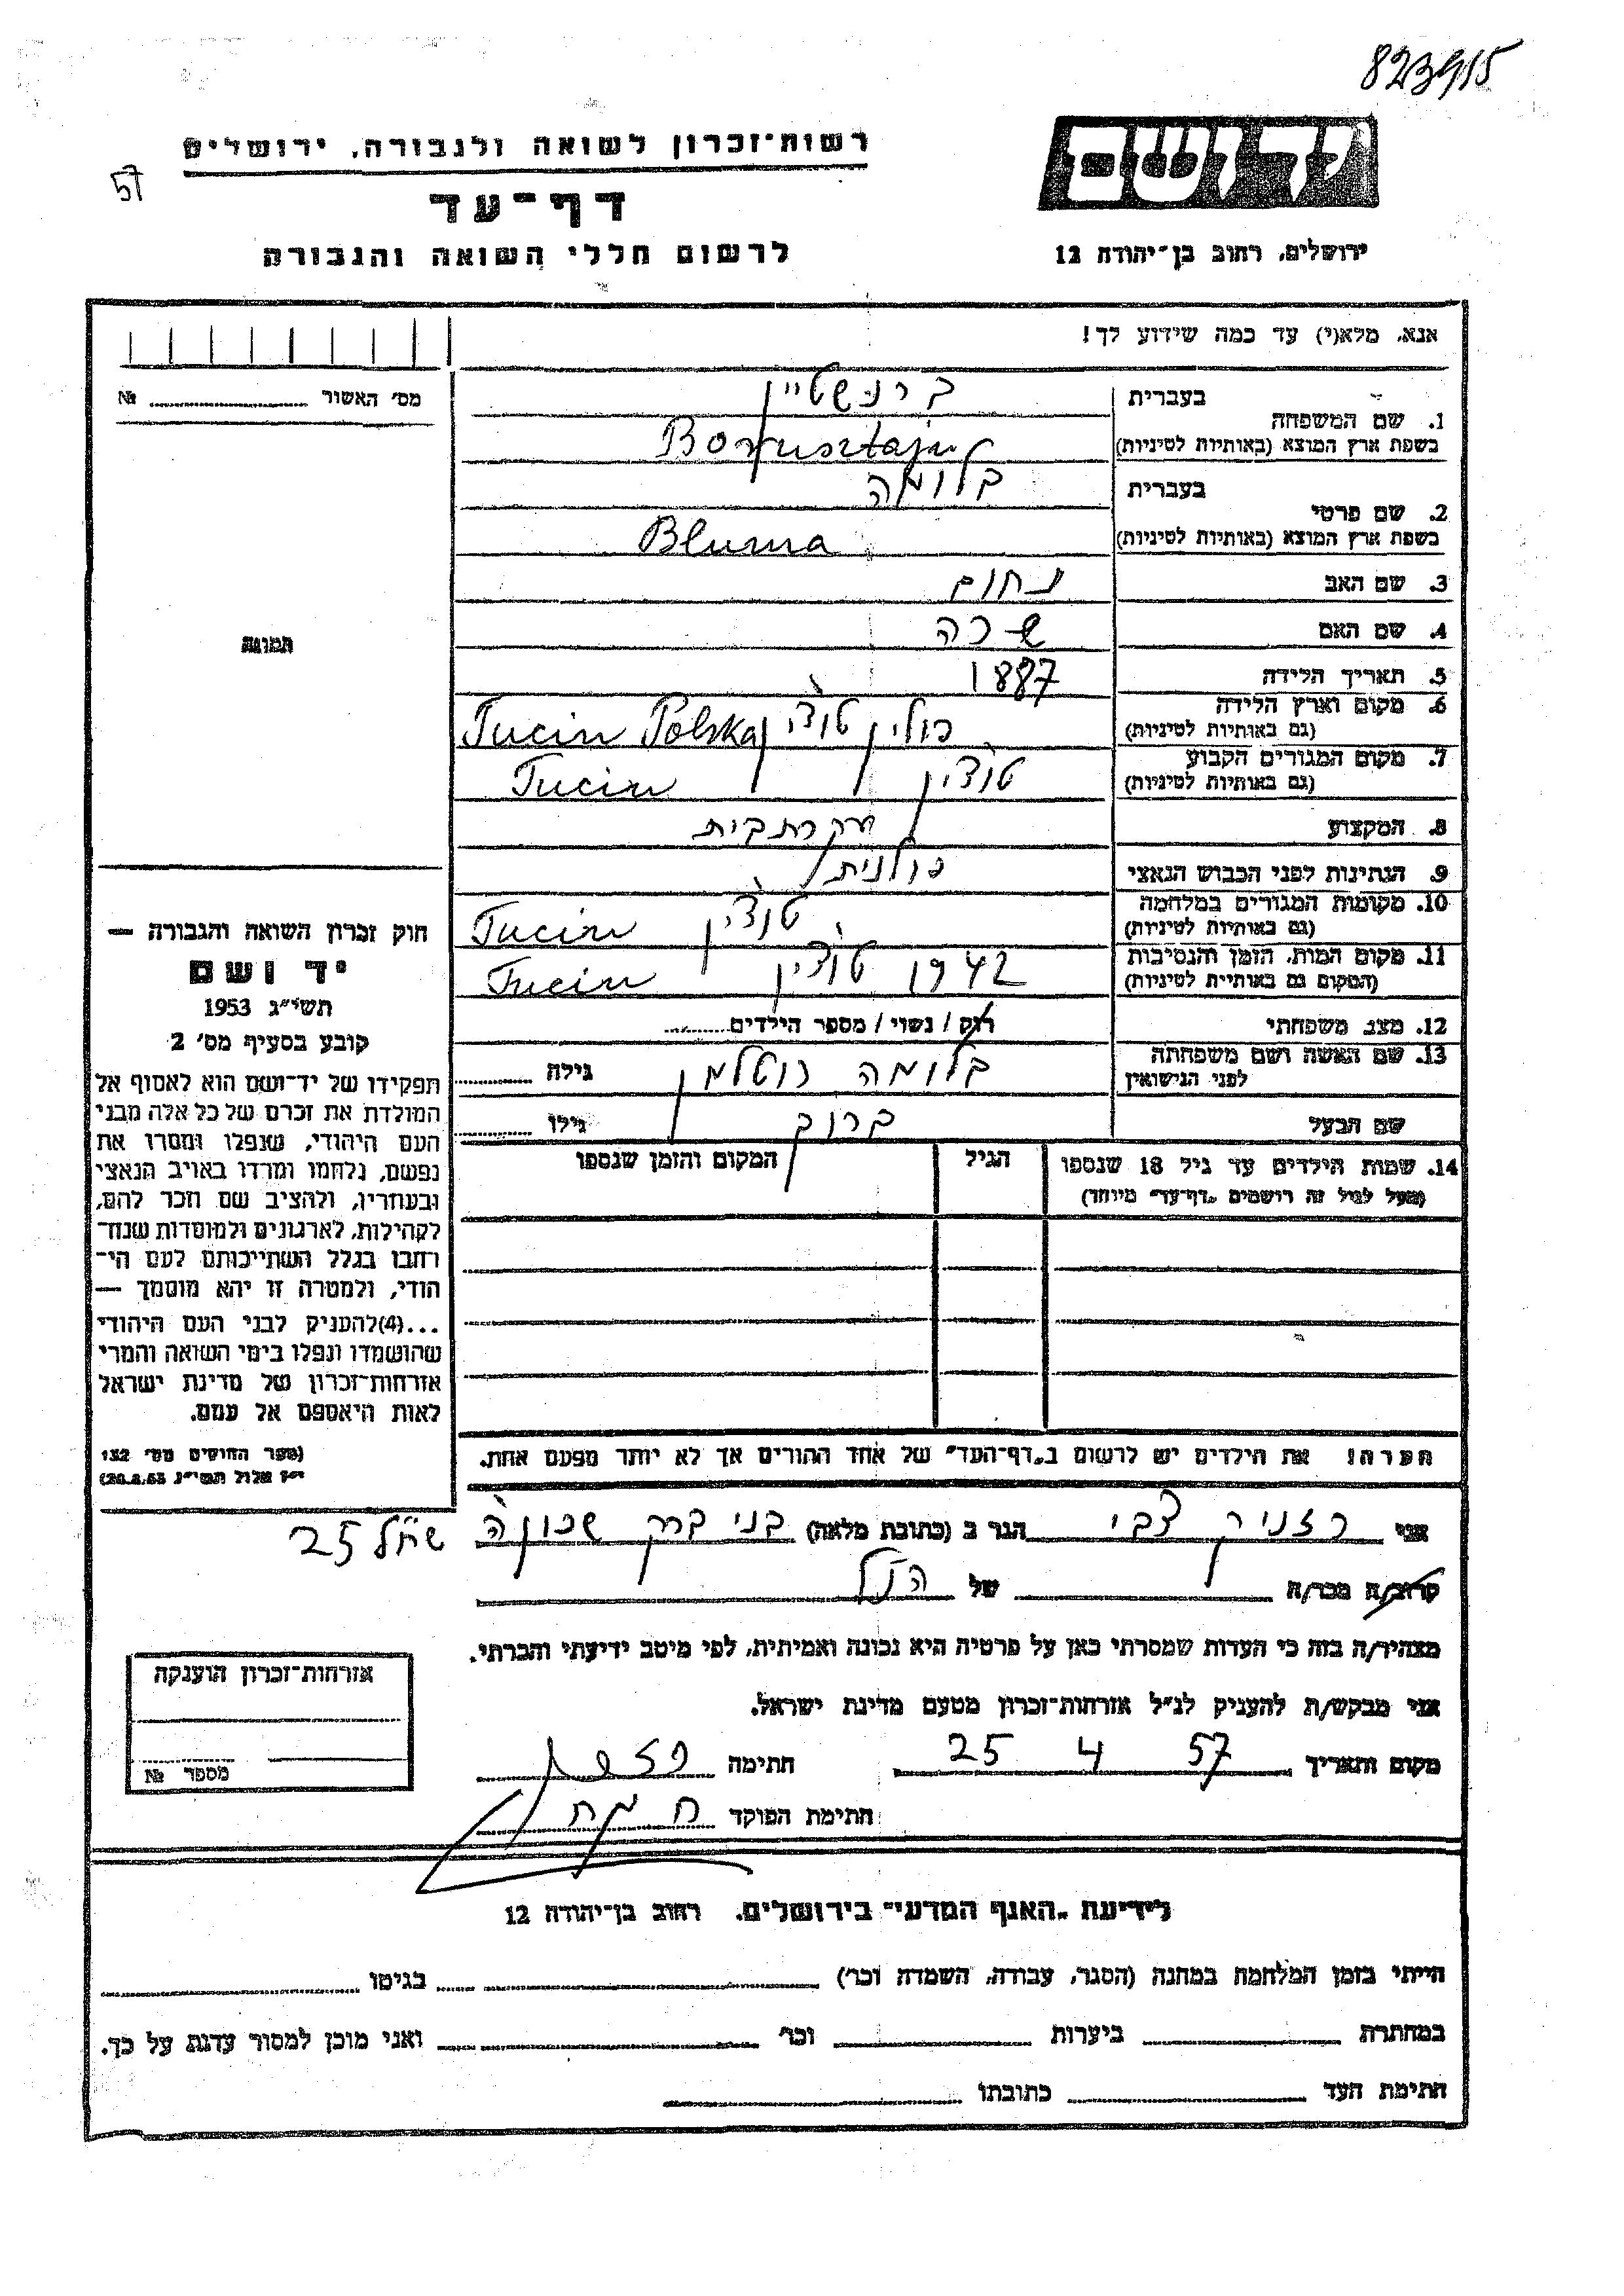 823915
רשות־זכרון לשואה ולגבורה, ירושלים
57
דף־עד
לרשום חללי השואה והגבורה
יד ושם
ירושלים, רחוב בן־יהודה 12
אנא, מלא(י) עד כמה שידוע לך!
מס׳ האשור № 
1. שם המשפחה
בעברית ברנשטיין
בשפת ארץ המוצא (באותיות לטיניות) Bornsztajn
2. שם פרטי
בעברית בלומה
בשפת ארץ המוצא (באותיות לטיניות) Bluma
3. שם האב נחום
4. שם האם שרה
5. תאריך הלידה 1887
6. מקום וארץ הלידה (גם באותיות לטיניות) פולין טוצין Tucin Polska
7. מקום המגורים הקבוע (גם באותיות לטיניות) טוצין Tucin
8. המקצוע עקרת בית
9. הנתינות לפני הכבוש הנאצי פולנית
10. מקומות המגורים במלחמה (גם באותיות לטיניות) טוצין Tucin
11. מקום המות, הזמן והנסיבות (המקום גם באותיית לטיניות) 1942 טוצין Tucin
12. מצב משפחתי רוק / נשוי / מספר הילדים
13. שם האשה ושם משפחתה לפני הנישואין בלומה רוטלמן גילה
שם הבעל ברוך גילו
14. שמות הילדים עד גיל 18 שנספו (מעל לגיל זה רושמים „דף־עד״ מיוחד)
הגיל
המקום והזמן שנספו
הערה: את הילדים יש לרשום ב„דף־העד״ של אחד ההורים אך לא יותר מפעם אחת.
תמונה
חוק זכרון השואה והגבורה —
יד ושם
תשי״ג 1953
קובע בסעיף מס׳ 2
תפקידו של יד־ושם הוא לאסוף אל
המולדת את זכרם של כל אלה מבני
העם היהודי, שנפלו ומסרו את
נפשם, נלחמו ומרדו באויב הנאצי
ובעוזריו, ולהציב שם וזכר להם,
לקהילות, לארגונים ולמוסדות שנח־
רחבו בגלל השתייכותם לעם הי־
הודי, ולמטרה זו יהא מוסמך —
...(4)להעניק לבני העם היהודי
שהושמדו ונפלו בימי השואה והמרי
אזרחות־זכרון של מדינת ישראל
לאות היאספם אל עמם.
(ספר החוקים מס׳ 132
י״ז אלול תשי״ג 28.8.53)
אני רזניק צבי הגר ב (כתובת מלאה) בני ברק שכונה
שח״ל 25
קרוב/ה מכר/ה של הנ״ל
מצהיר/ה בזה כי העדות שמסרתי כאן על פרטיה היא נכונה ואמיתית, לפי מיטב ידיעתי והכרתי.
אני מבקש/ת להעניק לנ״ל אזרחות־זכרון מטעם מדינת ישראל.
מקום ותאריך 25 4 57 חתימה
חתימת הפוקד
אזרחות־זכרון הוענקה
מספר №
לידיעת „האגף המדעי״ בירושלים, רחוב בן־יהודה 12
הייתי בזמן המלחמה במחנה (הסגר, עבודה, השמדה וכר׳) בגיטו
במחתרת ביערות וכר׳ ואני מוכן למסור עדות על כך.
חתימת העד כתובתו